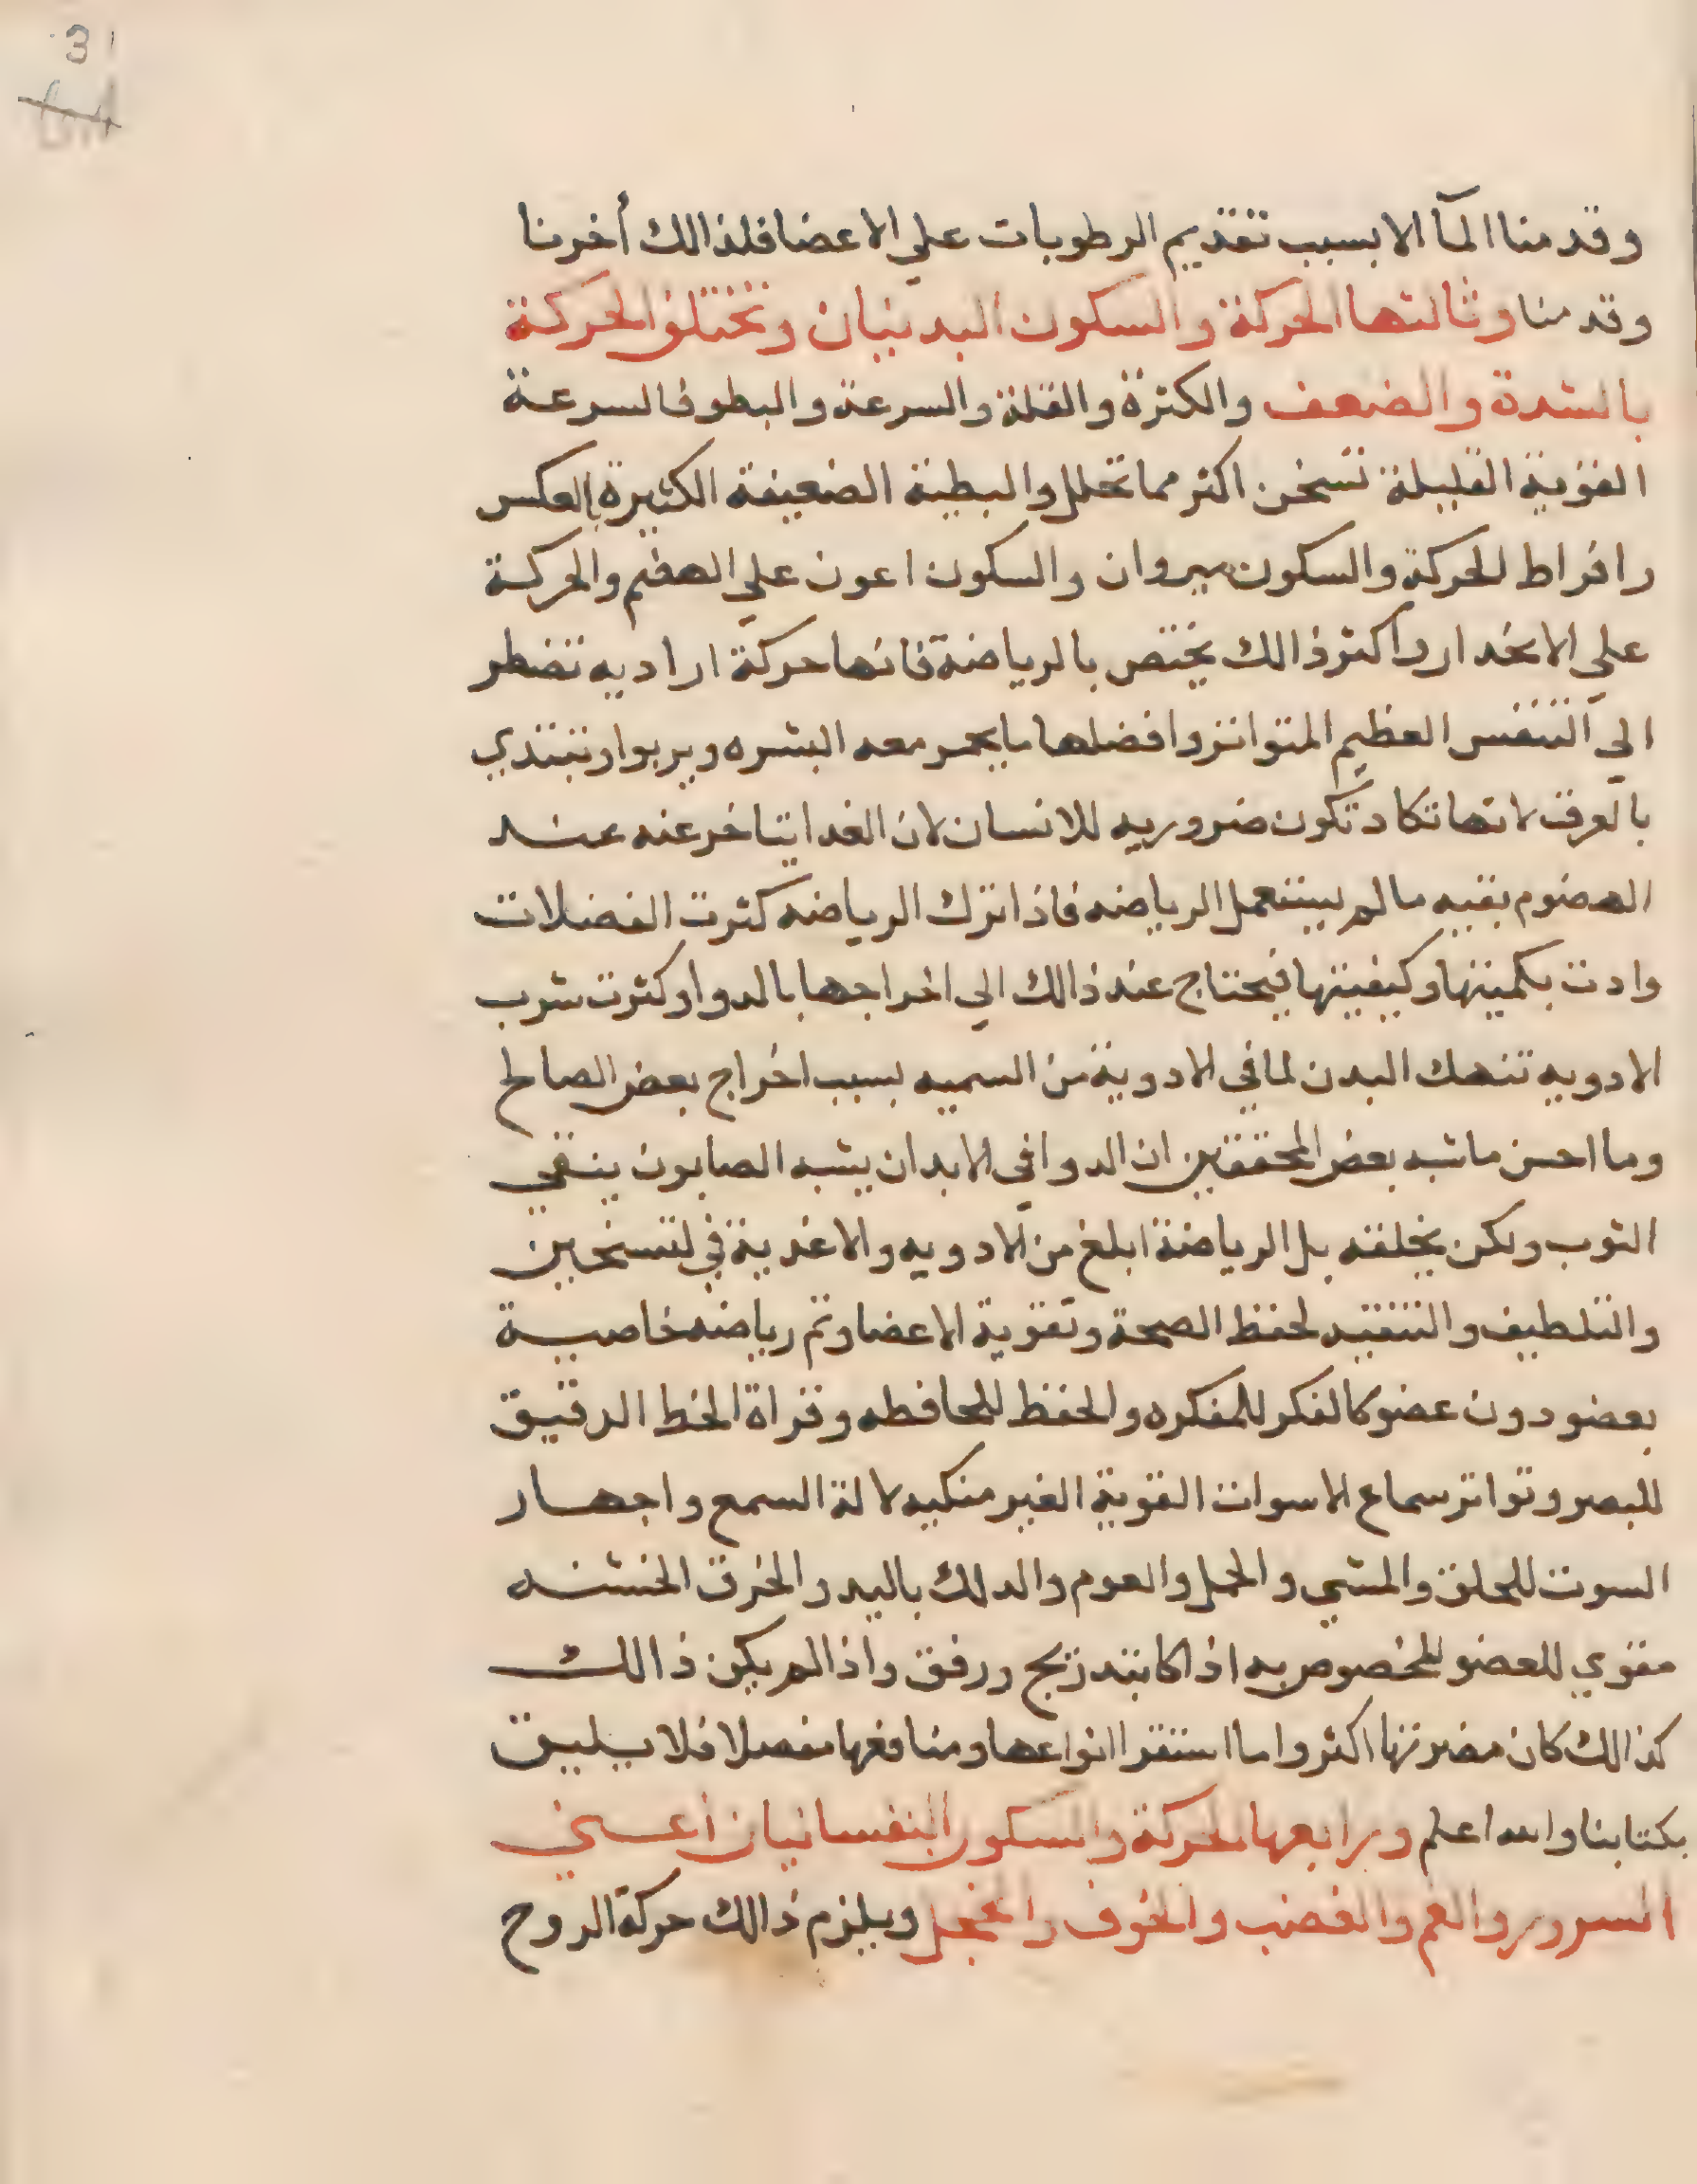 31
وقدمنا المآ الا بسبب تقديم الرطوبات علي الاعضا فلذالك أخرنا
وقدمنا وثالثها الحركة والسكون البدنيان وتختلف الحركة
بالشدة والضعف والكثرة والقلة والسرعة والبطو فالسرعة
القوية القليلة تسخن اكثر مما تحلل والبطية الضعيفة الكثيرة بالعكس
وافراط الحركة والسكون يبردان والسكون اعون علي الهضم والحركة
علي الانحدار واكثر ذالك يختص بالرياضة فانها حركة اراديه تضطر
الي التنفس العظيم المتواتر وافضلها ما يحمر معه البشره ويربوا وتبتدي
بالعرق لانها تكاد تكون ضروريه للانسان لان الغدا يتاخر عنه عند
الهضوم بقيه ما لم يستعمل الرياضه فاذا ترك الرياضه كثرت الفضلات
وادت بكميتها وكيفيتها فيحتاج عند ذالك الي اخراجها بالدوا وكثرت شرب
الادويه تنهك البدن لما في الادوية من السميه بسبب اخراج بعض الصالح
وما احسن ما شبه بعض المحققين ان الدوا في الابدان يشبه الصابون ينقي
الثوب ولكن يخلقه بل الرياضة ابلغ من الادويه والاغدية في لتسخين
والتلطيف والتنقيه لحفظ الصحة وتقوية الاعضا وثم رياضه خاصية
بعضو دون عضو كالفكر للمفكره والحفظ للحافظه وقراة الخط الدقيق
للبصر وتواتر سماع الاسوات القوية الغير منكيه لالة السمع واجهار
السوت للحلق والمشي والحمل والعوم والدلك باليد والخرق الخشنه
مقوي للعضو للخصوص به اذا كا بتدريج ورفق واذا لم يكن ذالك
كذالك كان مضرتها اكثر واما استقرا انواعها ومنافعها مفصلا فلا يليق
بكتابنا والله اعلم ورابعها الحركة والسكون النفسانيان أعني
السرور والغم والغضب والخوف والخجل ويلزم ذالك حركة الروح